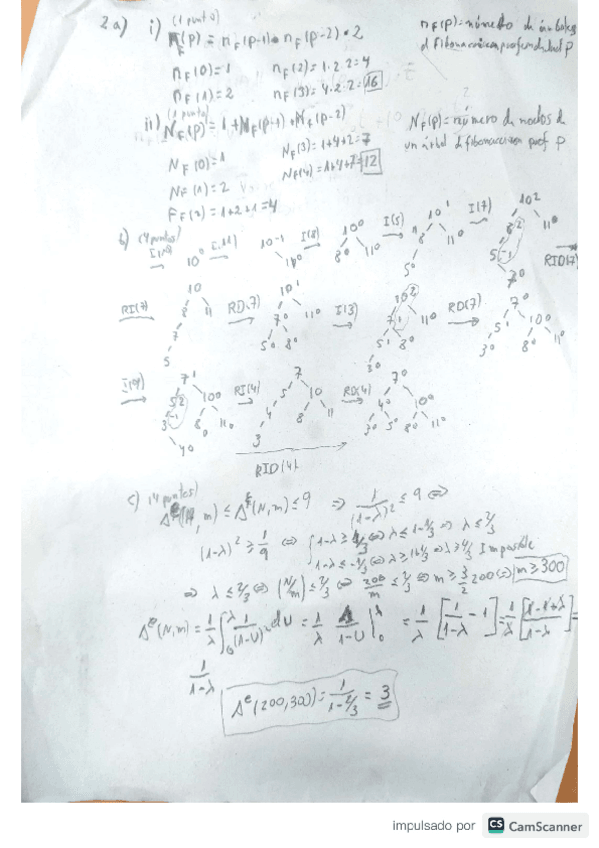 2a) i) (1 punto)
n_F(p) = n_F(p-1) • n_F(p-2) • 2
n_F(p) = número de árboles
d Fibonacci con profundidad p
n_F(0) = 1 n_F(2) = 1·2·2 = 4
n_F(1) = 2 n_F(3) = 4·2·2 = 16
ii) (1 punto)
N_F(p) = 1 + N_F(p-1) + N_F(p-2)
N_F(p) = número de nodos de
un árbol d fibonacci con prof p
N_F(0) = 1 N_F(3) = 1+4+2 = 7
N_F(1) = 2 N_F(4) = 1+4+7 = 12
F_F(2) = 1+2+1 = 4
b) (4 puntos)
10⁰ 10⁻¹ 11⁰ I(8) 10⁰ 8⁰ 11⁰ I(5) 10¹ 8 11⁰ 5⁰ I(7) 10² 8 2 11⁰ 5 -1 7⁰ RID(7)
RI(7) 10 8 11 7 5 RD(7) 10¹ 7⁰ 11⁰ 5⁰ 8⁰ I(3) 10² 7 11⁰ 5¹ 8⁰ 3⁰ RD(7) 7⁰ 5¹ 10⁰ 3⁰ 8⁰ 11⁰
7¹ 5 2 10⁰ 3 -1 8⁰ 11⁰ 4⁰ RI(4) 7 5 10 4 8 11 3 RD(4) 7⁰ 4⁰ 10⁰ 3⁰ 5⁰ 8⁰ 11⁰
RID(4)
c) (4 puntos)
(N, m) ≤ A^f(N, m) ≤ 9 ⇒ 1/(1-λ)² ≤ 9 ⇔
(1-λ)² ≥ 1/9 ⇔ { 1-λ ≥ 1/3 ⇔ λ ≤ 1-1/3 ⇒ λ ≤ 2/3
1-λ ≤ -1/3 ⇔ λ ≥ 1+1/3 ⇔ λ ≥ 4/3 Imposible
⇒ λ ≤ 2/3 ⇔ (N/m) ≤ 2/3 ⇔ 200/m ≤ 2/3 ⇔ m ≥ 3/2 200 ⇔ m ≥ 300
A^e(N, m) = 1/λ ∫₀^λ 1/(1-u)² du = 1/λ 1/1-u |₀^λ = 1/λ [1/1-λ - 1] = 1/λ [1-1+λ/1-λ] =
1/1-λ
A^e(200, 300) = 1/1-2/3 = 3
impulsado por CS CamScanner